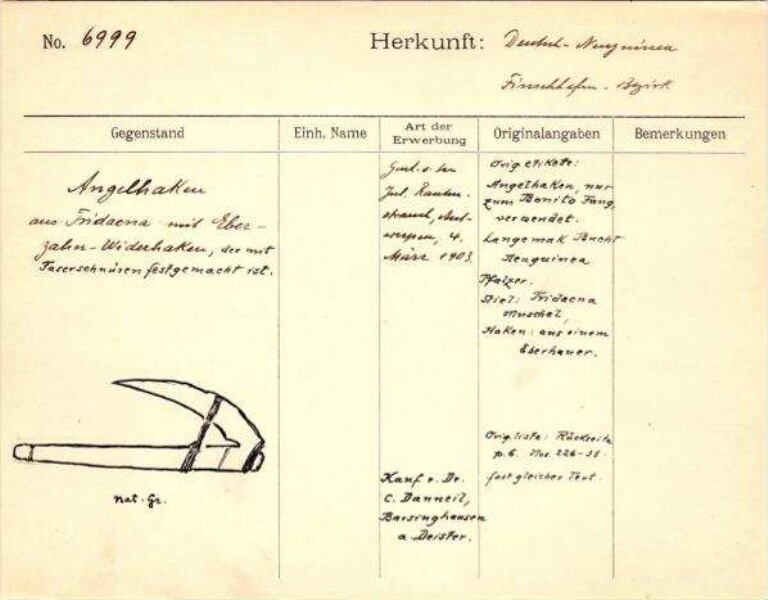 No. 6999
Herkunft: Deutsch-Neuguinea
Finschhafen-Bezirk
Gegenstand
Einh. Name
Art der Erwerbung
Originalangaben
Bemerkungen
Angelhaken
aus Tridacna mit Eber-
zahn-Widerhaken, der mit
Faserschnüren festgemacht ist.
nat. Gr.
Jul. Rauten-
strauch, Ant-
werpen, 4.
März 1903.
Kauf v. Dr.
C. Danneil,
Barsinghausen
a. Deister.
Orig. etikette:
Angelhaken, nur
zum Bonito Fang
verwendet.
Langemak Bucht
Neuguinea
Pfalzer.
Stiel: Tridacna
Muschel,
Haken: aus einem
Eberhauer.
Orig. liste: Rückseite
p. 6. Nos. 226-35
fast gleicher Text.